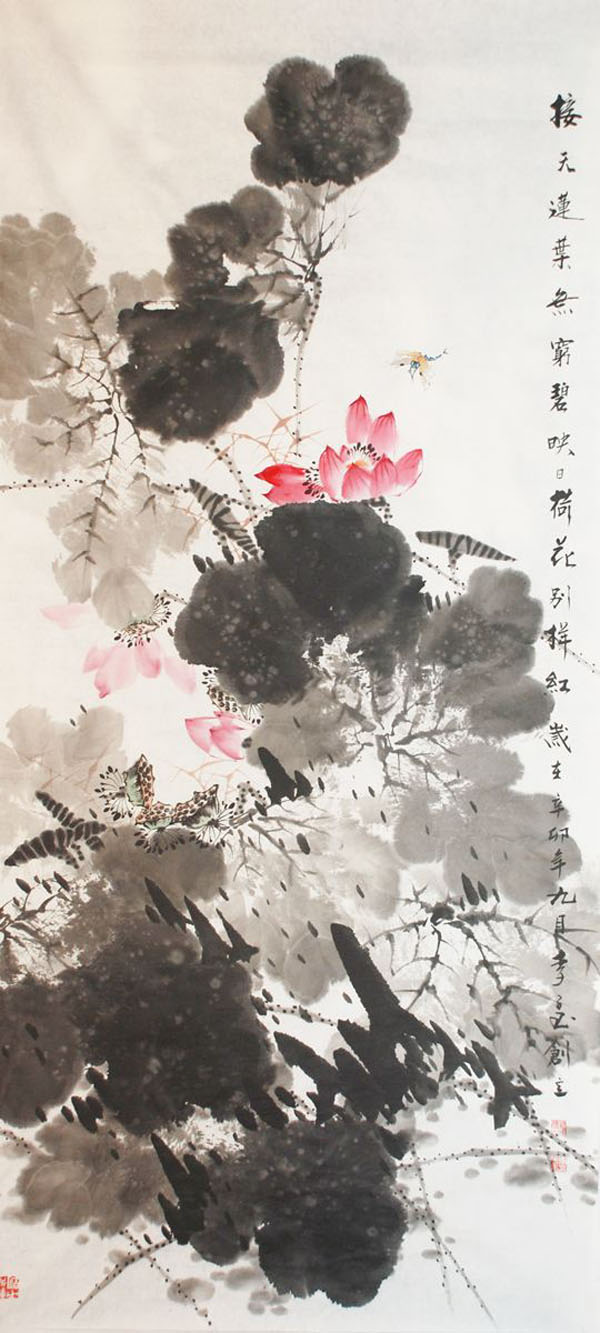 接天蓮葉無窮碧映日荷花别樣紅歲在辛卯年九月李